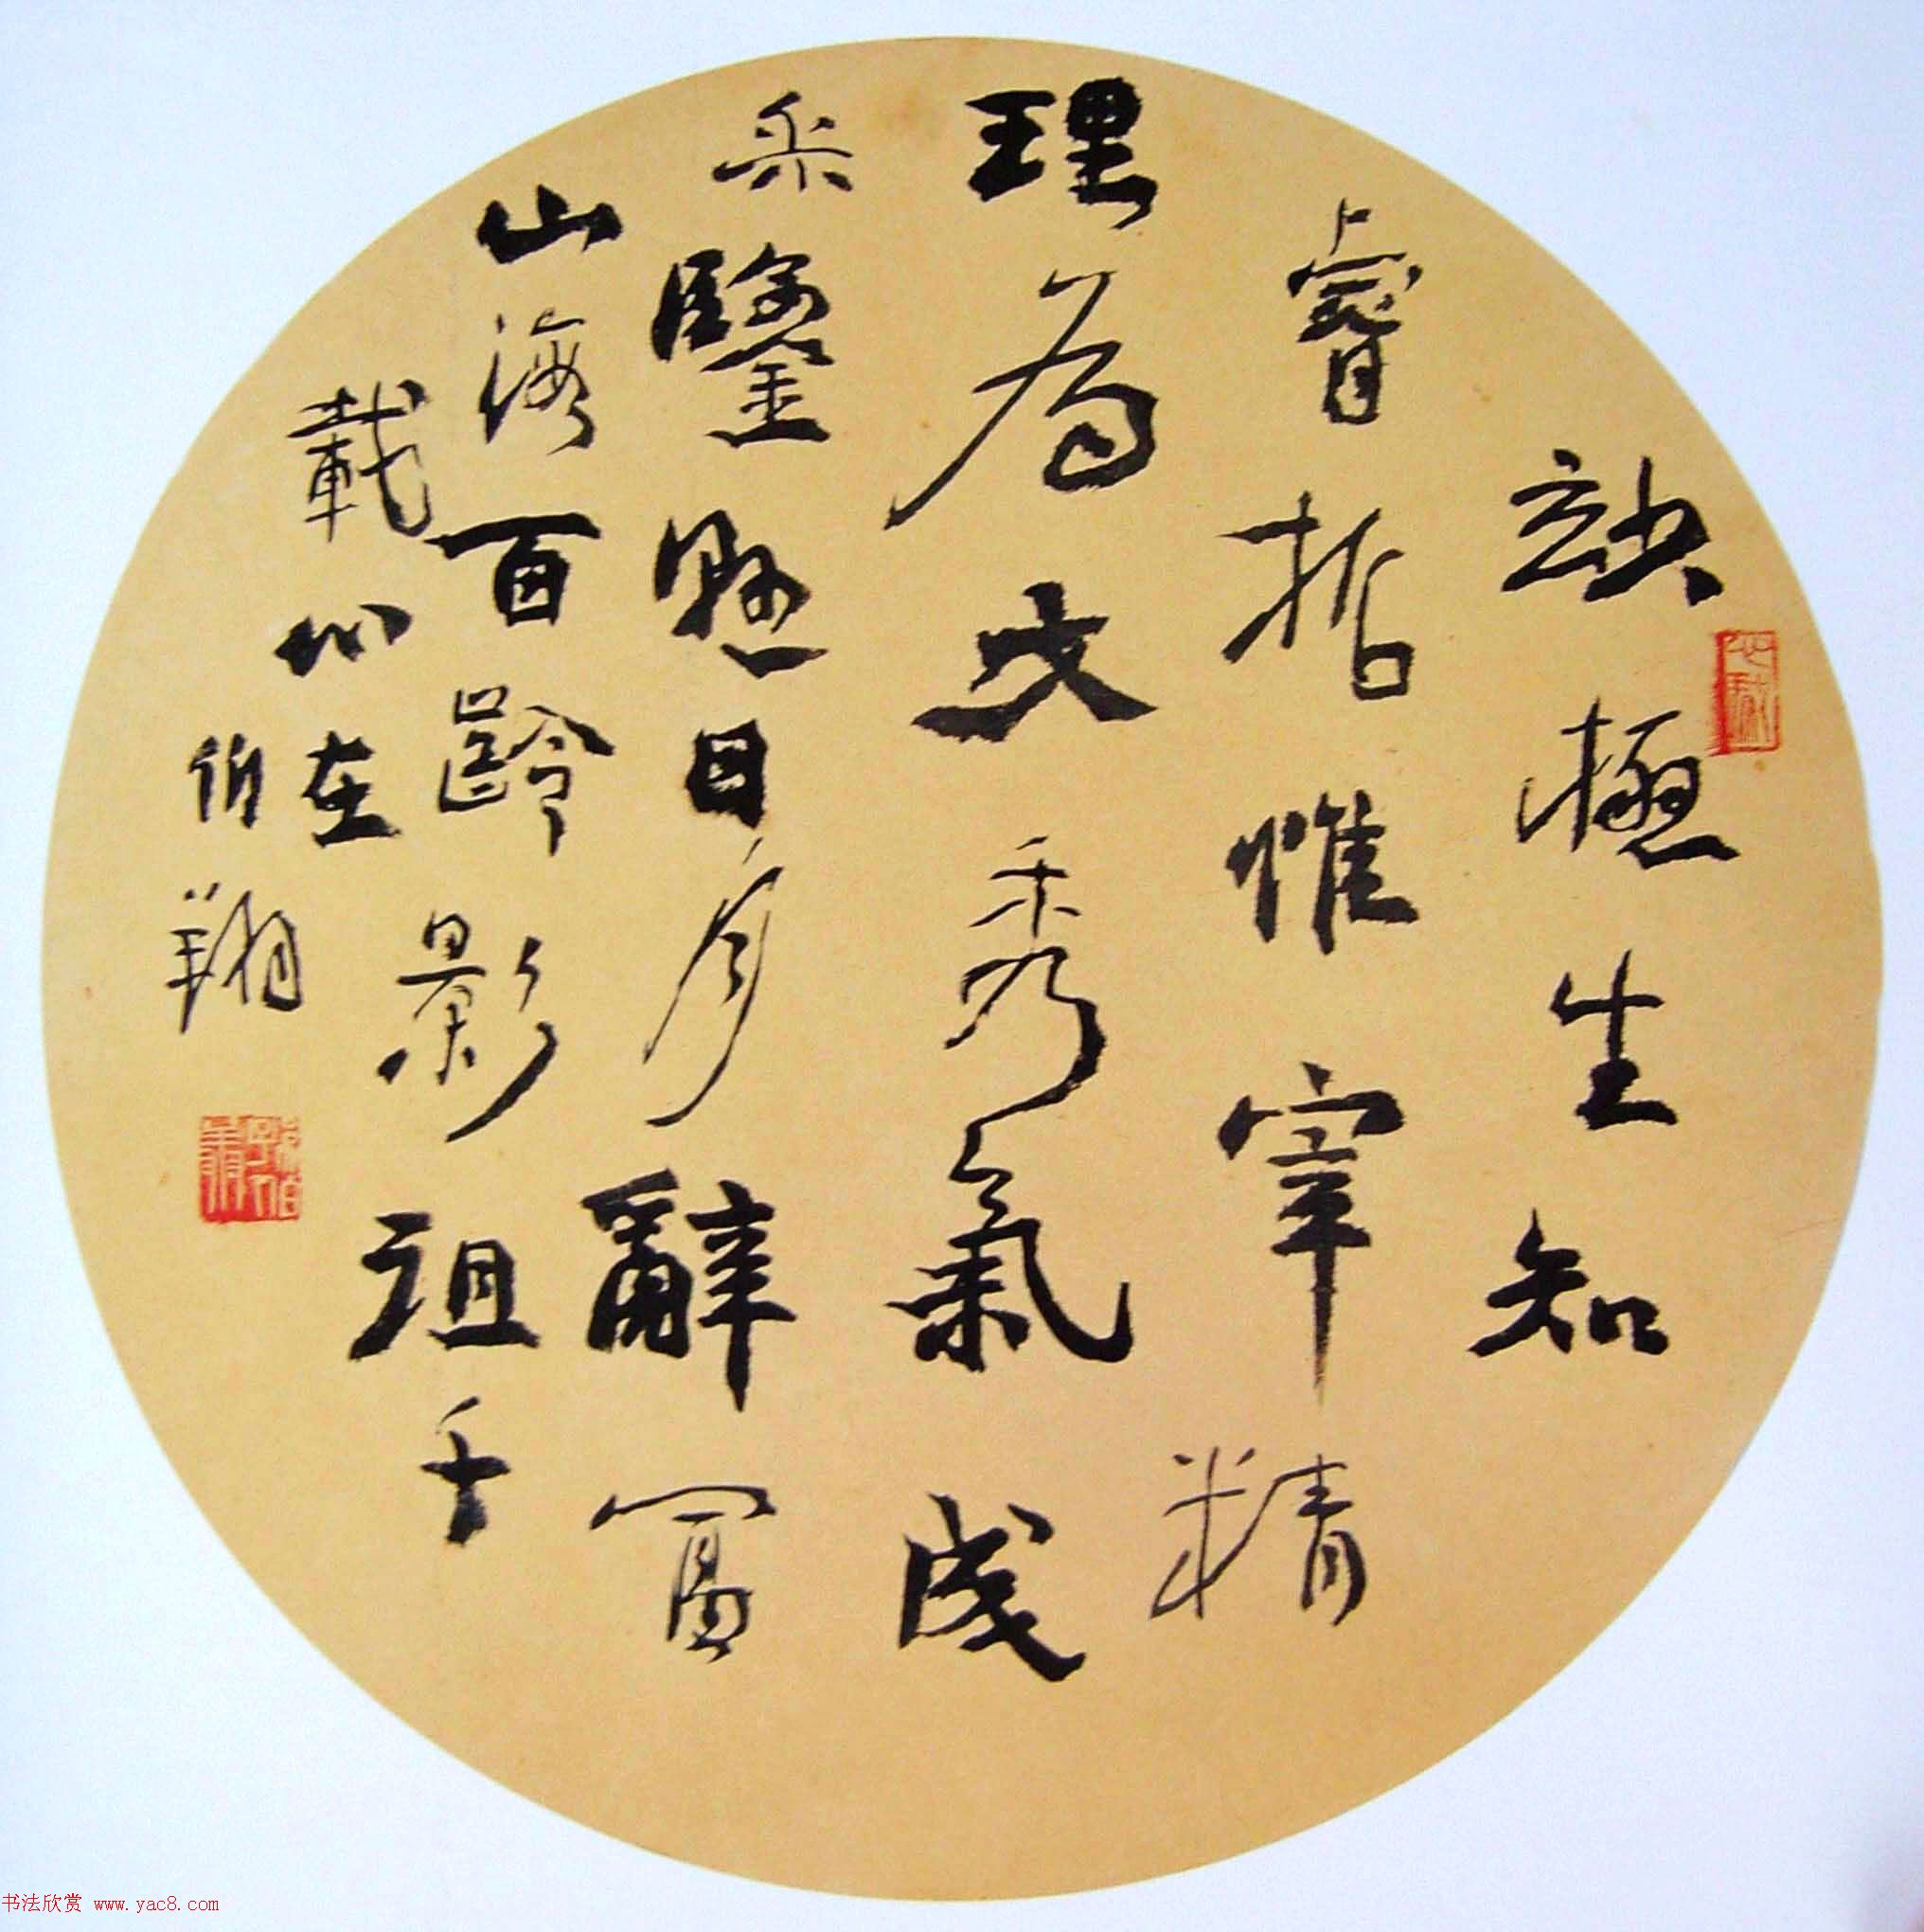 妙極生知
睿哲惟宰精
理為文秀氣成
采鑒懸日月辭富
山海百齡影徂千
載心在
伯翔
书法欣赏 www.yac8.com